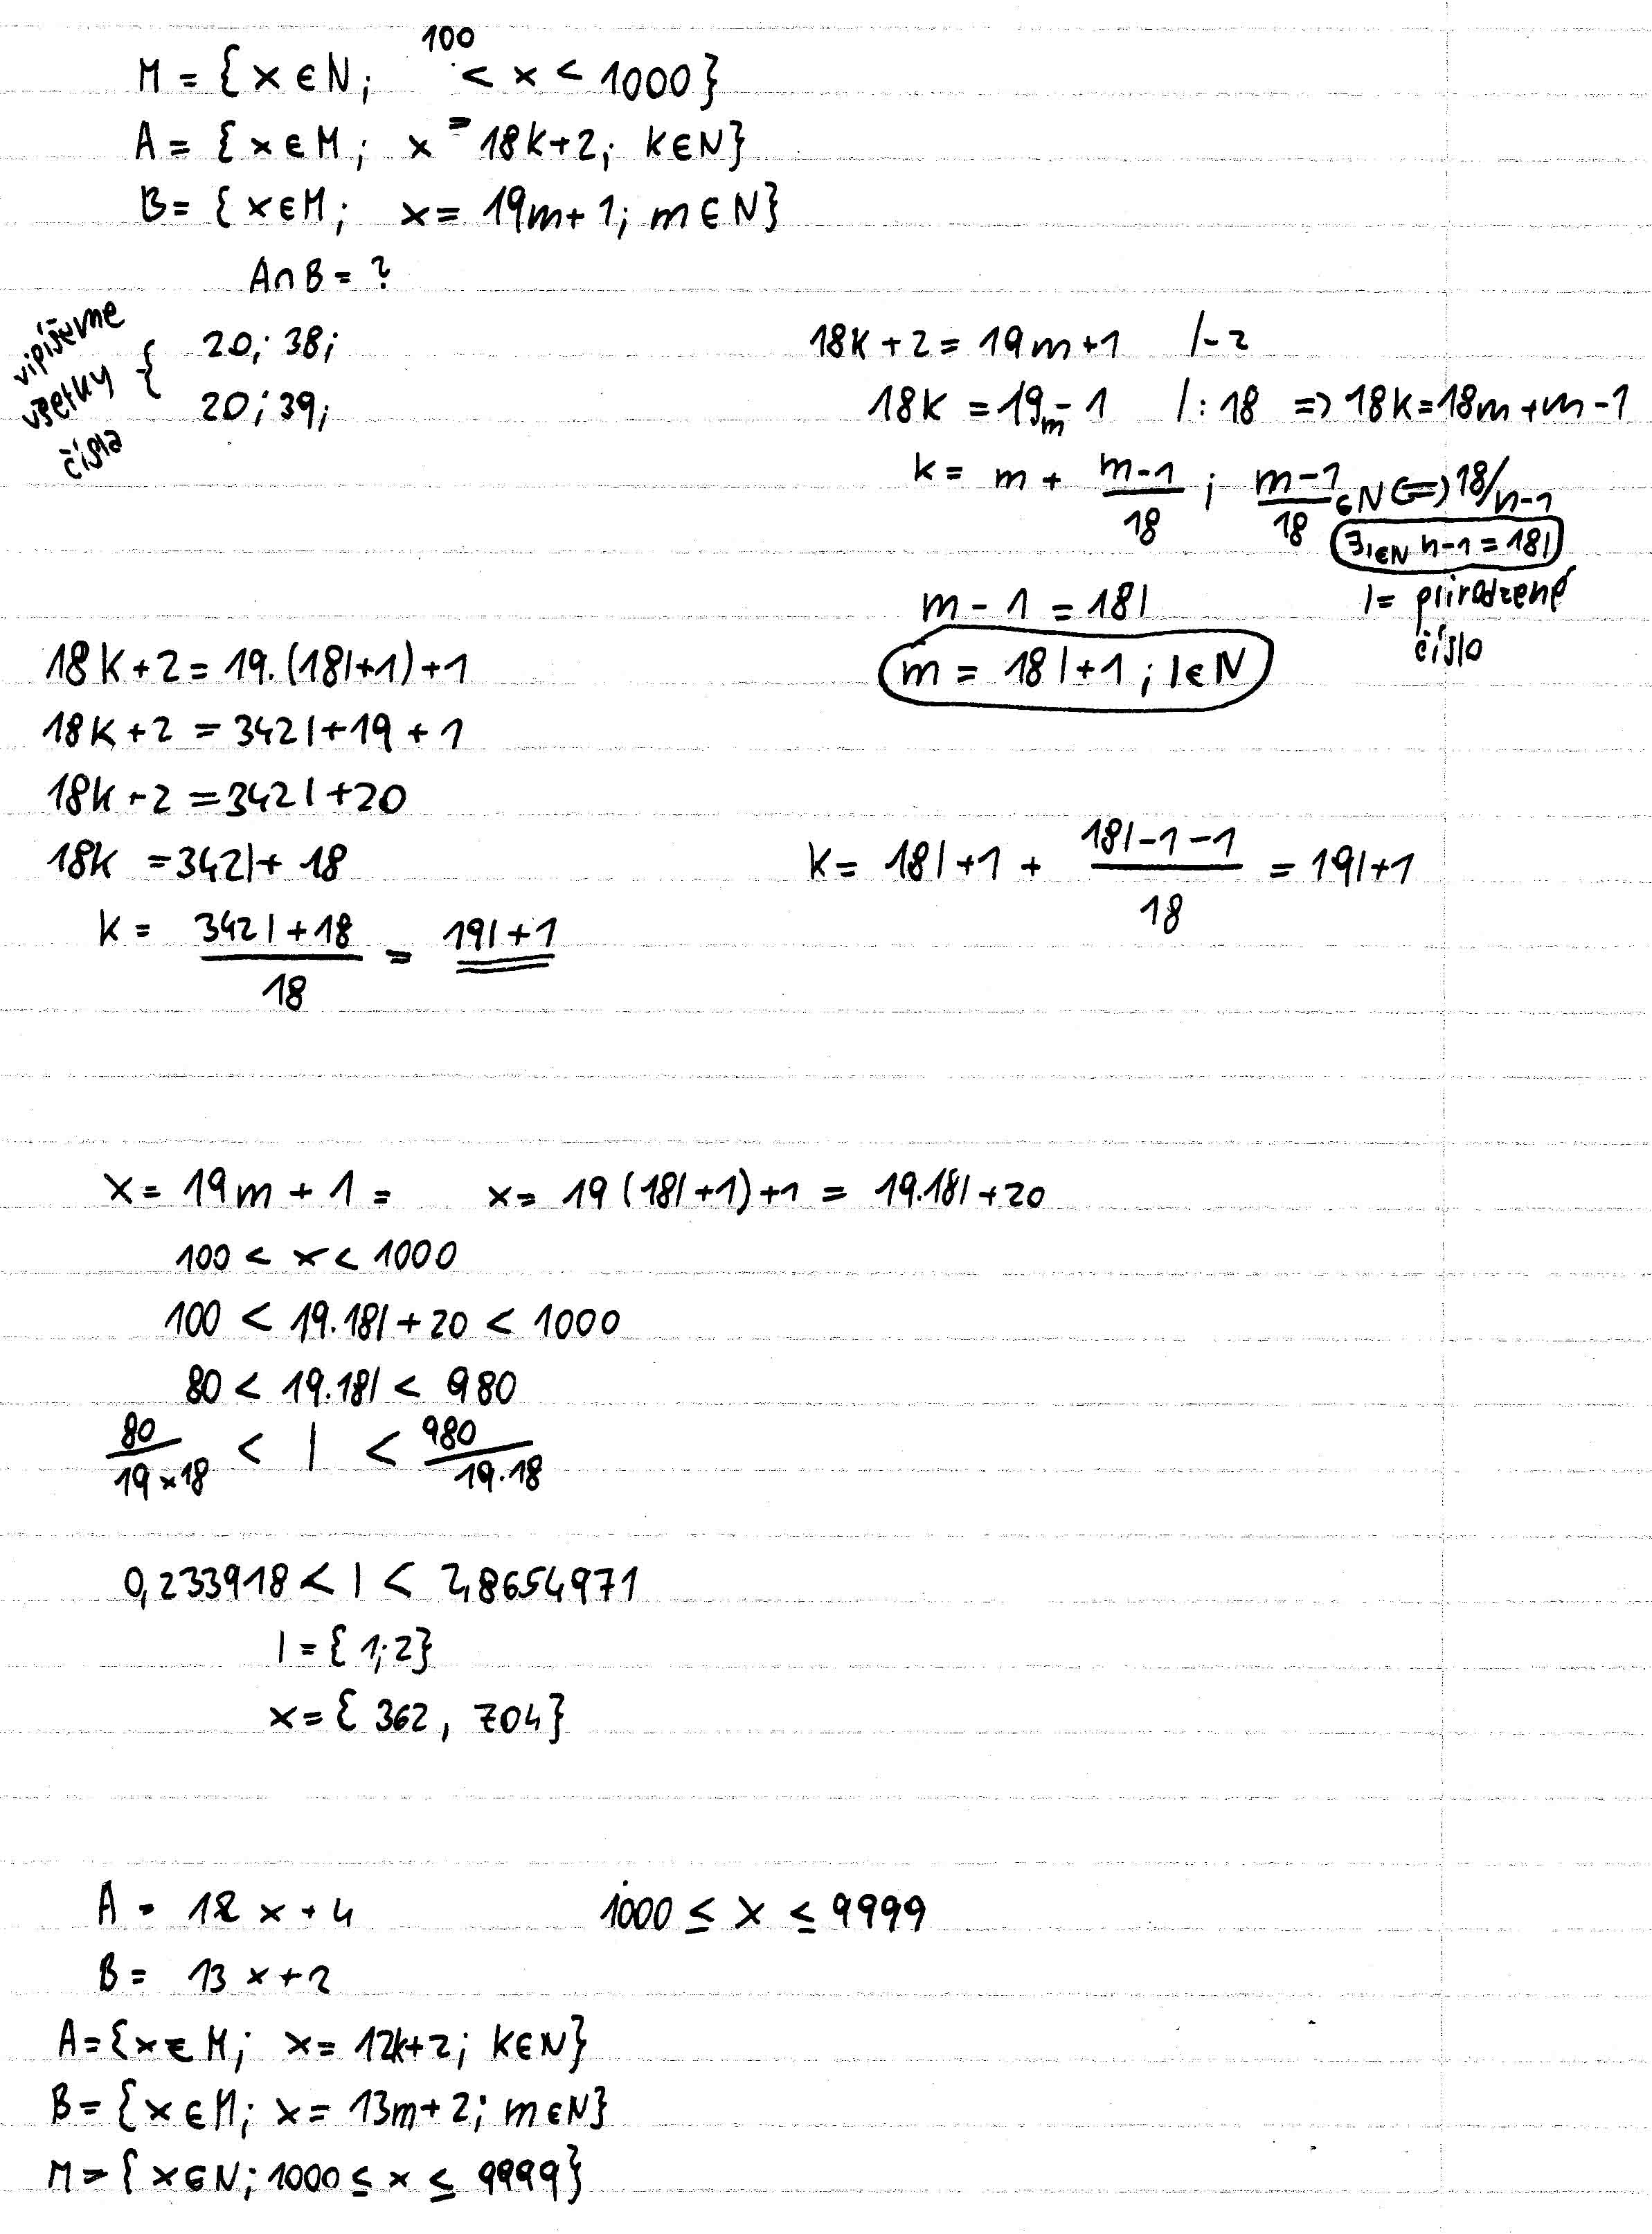 M = { x ∈ N; 100 < x < 1000 }
A = { x ∈ M; x = 18k+2; k ∈ N }
B = { x ∈ M; x = 19m+1; m ∈ N }
A∩B = ?
vipíšeme všetky čísla { 20; 38;
20; 39;
18k + 2 = 19m+1 /-2
18k = 19m - 1 /:18 => 18k = 18m + m - 1
k = m + (m-1)/18 ; (m-1)/18 ∈ N <=> 18/n-1
∃l∈N n-1 = 18l
m - 1 = 18l
l = prirodzené
číslo
m = 18l+1 ; l ∈ N
18k+2 = 19.(18l+1)+1
18k+2 = 342l+19+1
18k+2 = 342l+20
18k = 342l+ 18
k = (342l+18)/18 = 19l+1
k = 18l+1 + (18l-1-1)/18 = 19l+1
x = 19m + 1 = x = 19(18l+1)+1 = 19.18l+20
100 < x < 1000
100 < 19.18l+20 < 1000
80 < 19.18l < 980
80/(19×18) < l < 980/(19.18)
0,233918 < l < 2,8654971
l = { 1;2}
x = { 362, 704}
A = 12 x + 4 1000 ≤ x ≤ 9999
B = 13 x + 2
A = { x ∈ M; x = 12k+2; k ∈ N }
B = { x ∈ M; x = 13m+2; m ∈ N }
M = { x ∈ N; 1000 ≤ x ≤ 9999 }